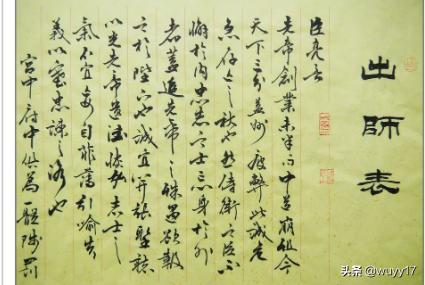 出師表
臣亮言
先帝創業未半而中道崩殂今
天下三分益州疲弊此誠危
急存亡之秋也然侍衛之臣不
懈於内忠志之士忘身於外
者蓋追先帝之殊遇欲報
之於陛下也誠宜開張聖聽
以光先帝遺德恢弘志士之
氣不宜妄自菲薄引喻失
義以塞忠諫之路也
宮中府中俱為一體陟罰
头条 @wuyy17